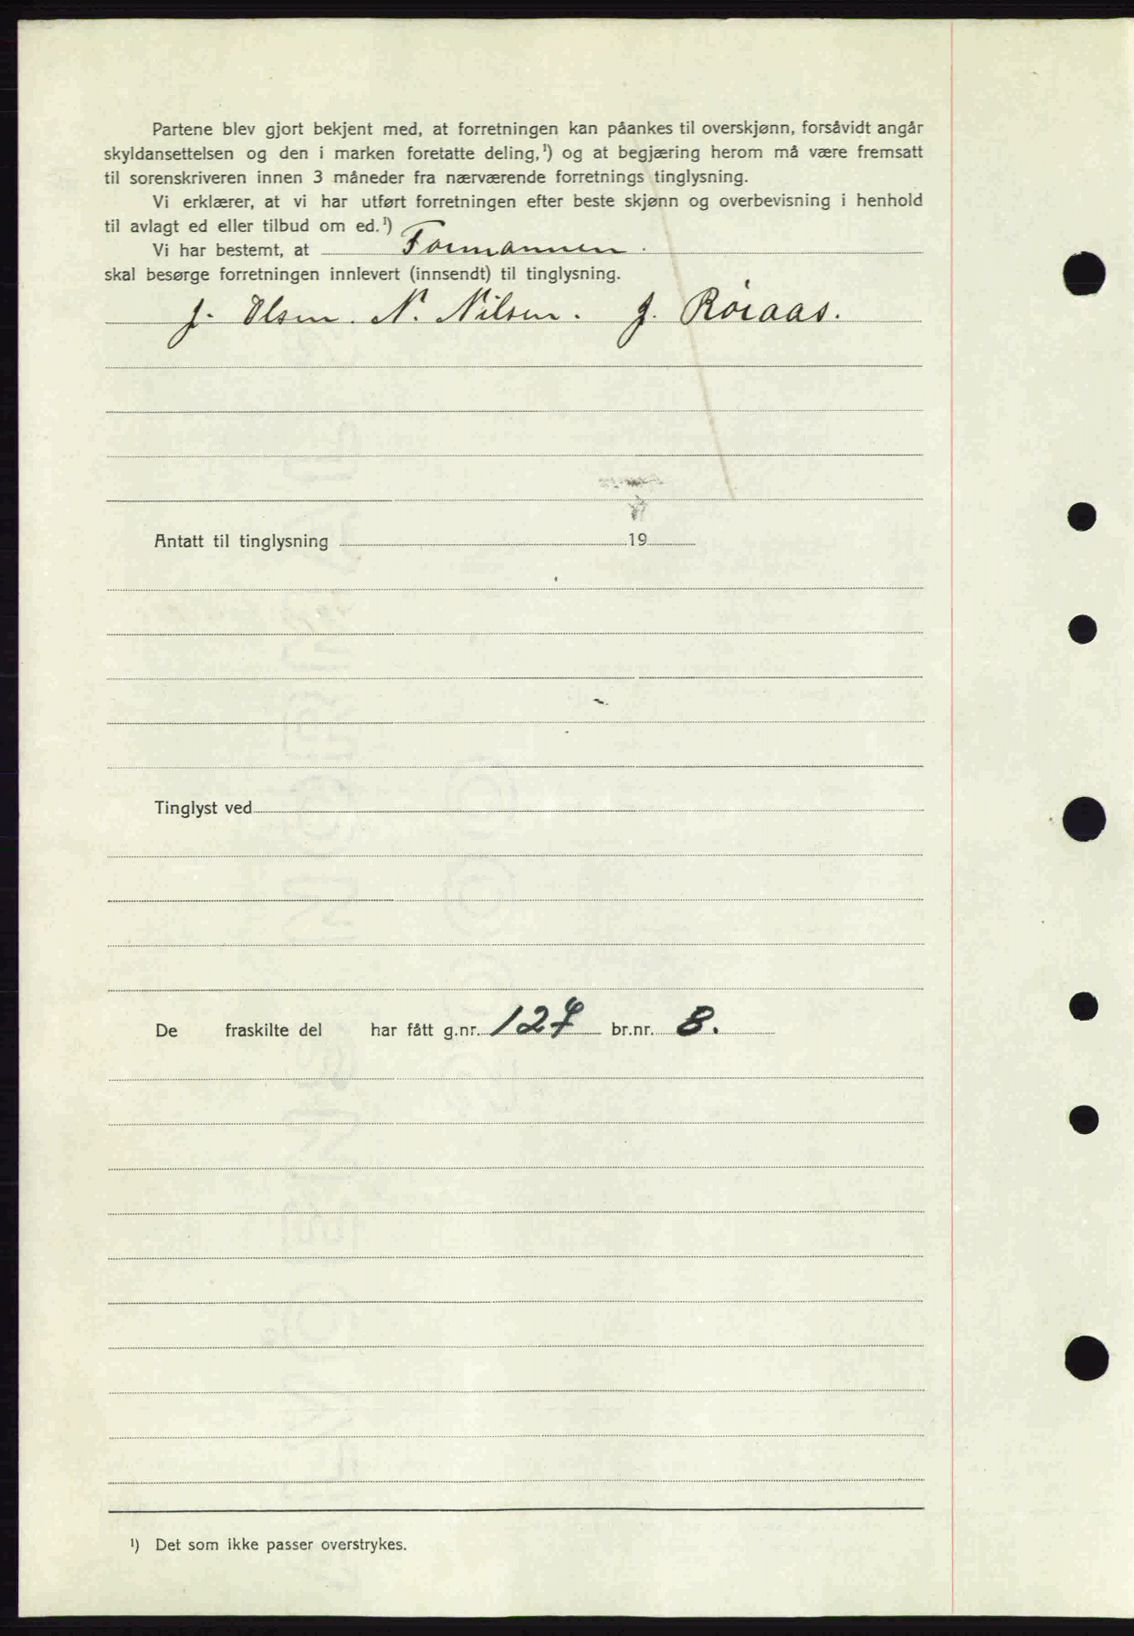 Partene blev gjort bekjent med, at forretningen kan påankes til overskjønn, forsåvidt angår
skyldansettelsen og den i marken foretatte deling,¹) og at begjæring herom må være fremsatt
til sorenskriveren innen 3 måneder fra nærværende forretnings tinglysning.
Vi erklærer, at vi har utført forretningen efter beste skjønn og overbevisning i henhold
til avlagt ed eller tilbud om ed.¹)
Vi har bestemt, at Formannen.
skal besørge forretningen innlevert (innsendt) til tinglysning.
J. Olsen. N. Nilsen. J. Röraas.
Antatt til tinglysning 19
Tinglyst ved
De fraskilte del har fått g.nr. 127 br.nr. 8.
¹) Det som ikke passer overstrykes.